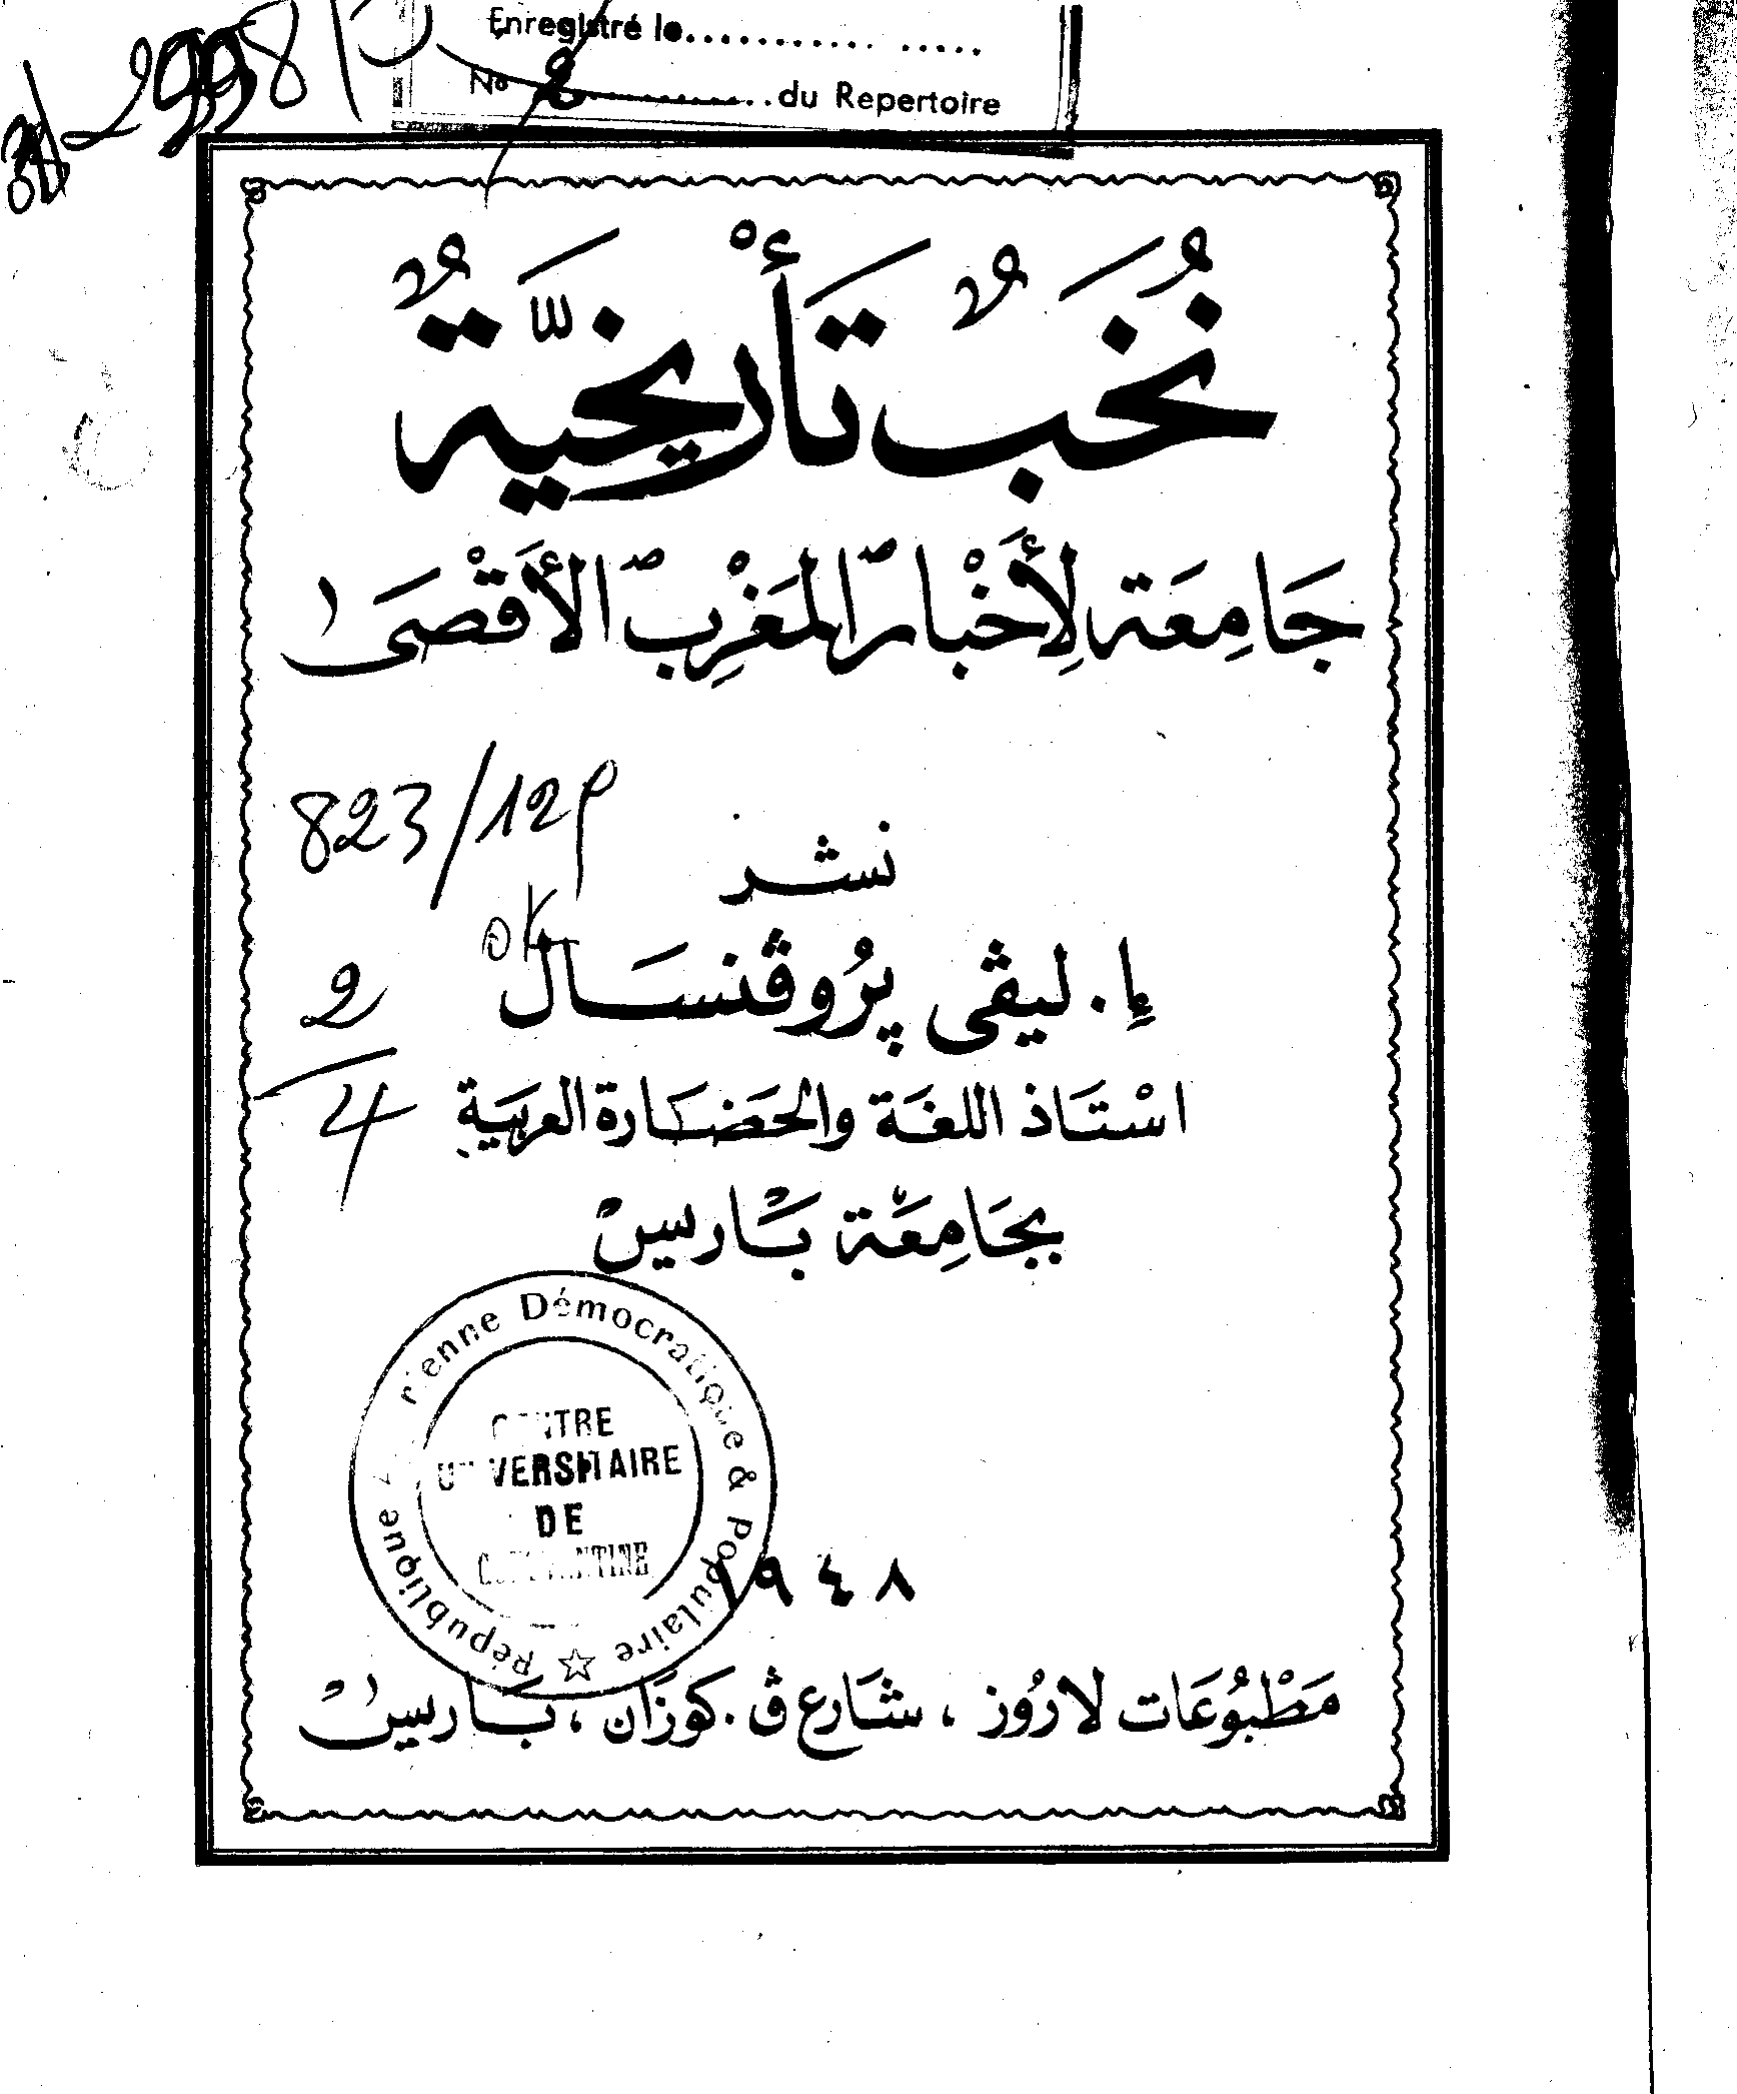 Enregistré le
No du Repertoire
نُخَبٌ تَأْرِيخيَّةٌ
جَامِعَة لِأَخْبار المَغْرِب الأَقْصَى
823/12p
نشر
OK
إ. ليڤي پرُوڤنسَال
2
4
اسْتَاذ اللغَة والحَضَارة العربيَة
بجَامِعَة بَاريسْ
République rienne Démocratique & Populaire
CENTRE
UNIVERSITAIRE
DE
CONSTANTINE
١٩٤٨
مَطْبُوعَات لارُوز ، شَارع ڤ. كوزَان ، بَاريسْ